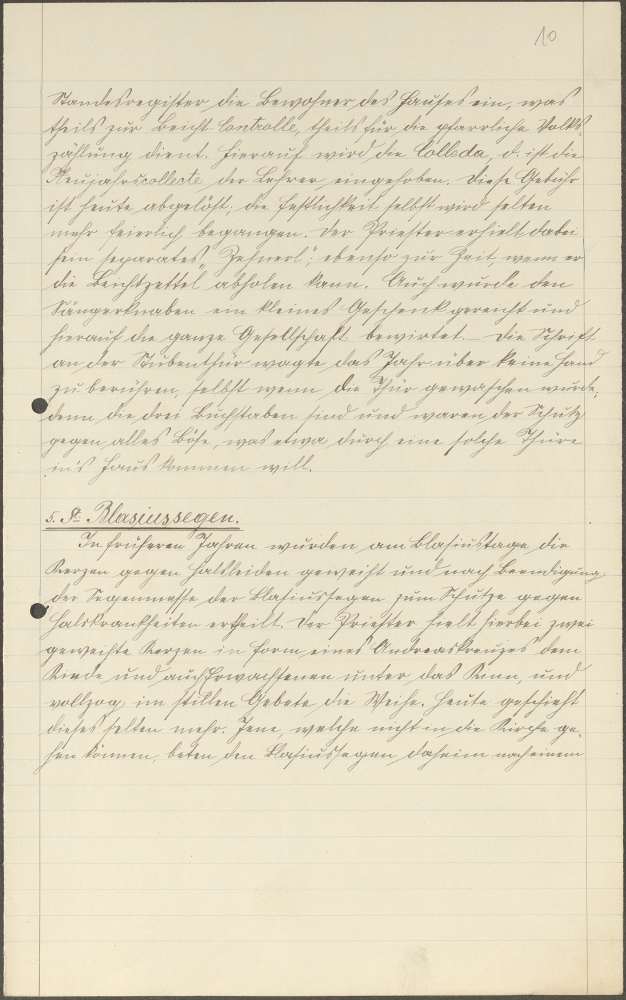 10
Standesregister die Bewohner des Hauses ein, was
theils zur Beicht Controlle, theils für die pfarrliche Volks
zählung dient. Hierauf wird die Colleda, d. ist die
Neujahrscollecte der Lehrer, eingehoben. Diese Gebühr
ist heute abgelöst; die Festlichkeit selbst wird selten
mehr feierlich begangen. Der Priester erhielt dabei
sein separates "Zehnerl"; ebenso zur Zeit, wenn er
die "Beichtzettel" abholen kann. Auch wurde den
Sängerknaben ein kleines Geschenk gereicht und
hierauf die ganze Gesellschaft bewirtet. – Die Schrift
an der Stubenthür wagte das Jahr über keine Hand
zu berühren, selbst wenn die Thür gewaschen wurde,
denn die drei Buchstaben sind und waren der Schutz
gegen alles Böse, was etwa durch eine solche Thüre
in's Haus kommen will.
5. St. Blasiussegen.
In früheren Jahren wurden am Blasiustage die
Kerzen gegen Halsleiden geweiht und nach Beendigung
der Segenmesse der Blasiussegen zum Schutze gegen
Halskrankheiten ertheilt. Der Priester hielt hierbei zwei
geweihte Kerzen in Form eines Andreaskreuzes dem
Kinde und auch Erwachsenen unter das Kinn, und
vollzog, im stillen Gebete, die Weihe. Heute geschieht
dieses selten mehr. Jene, welche nicht in die Kirche ge-
hen können, beten den Blasiussegen daheim nach einem